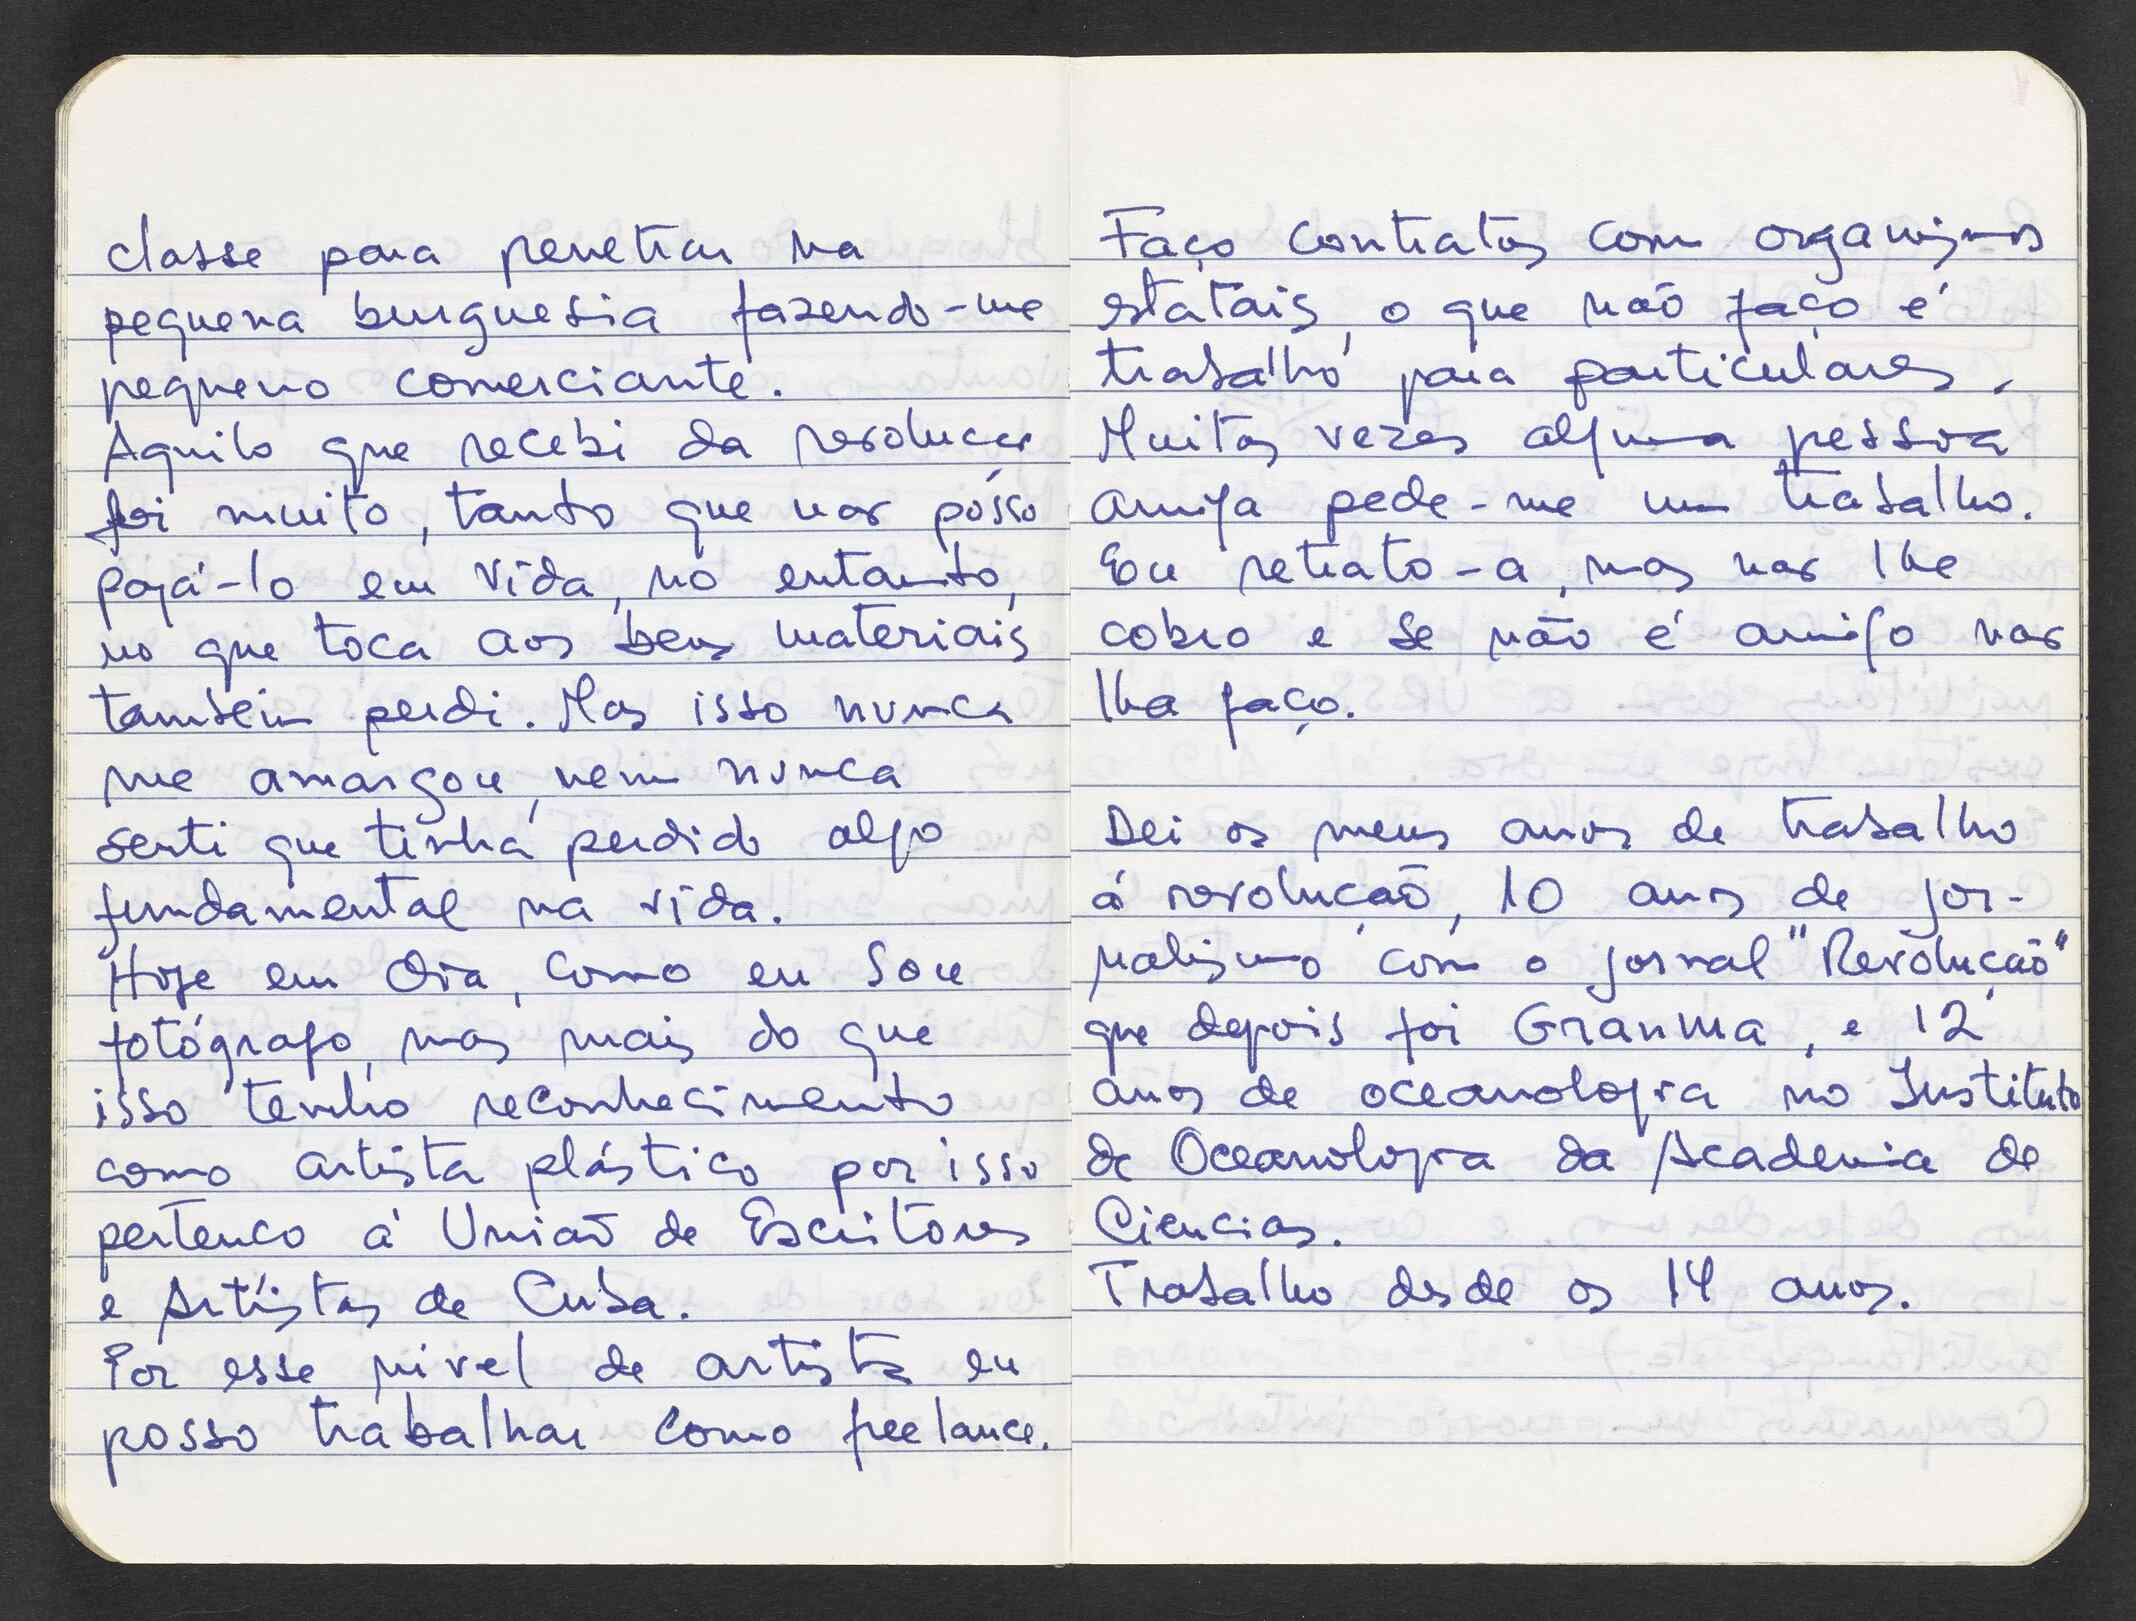 classe para penetrar na
pequena burguesia fazendo-me
pequeno comerciante.
Aquilo que recebi da revolucao
foi muito, tanto que nao posso
pagá-lo em vida, no entanto,
no que toca aos bens materiais
também perdi. Mas isso nunca
me amargou, nem nunca
senti que tinha perdido algo
fundamental na vida.
Hoje em dia, como eu sou
fotógrafo, mas mais do que
isso tenho reconhecimento
como artista plástico por isso
pertenco á União de Escritores
e Artistas de Cuba.
Por esse nivel de artista eu
posso trabalhar como freelance.
Faço contratos com organismos
estatais, o que não faço é
trabalho para particulares.
Muitas vezes alguma pessoa
amiga pede-me um trabalho.
Eu retrato-a, mas nao lhe
cobro e se não é amigo nao
lha faço.
Dei os meus anos de trabalho
á revolução, 10 anos de jor-
nalismo com o jornal "Revolução"
que depois foi Granma, e 12
anos de oceanologia no Instituto
de Oceanologia da Academia de
Ciencias.
Trabalho desde os 14 anos.